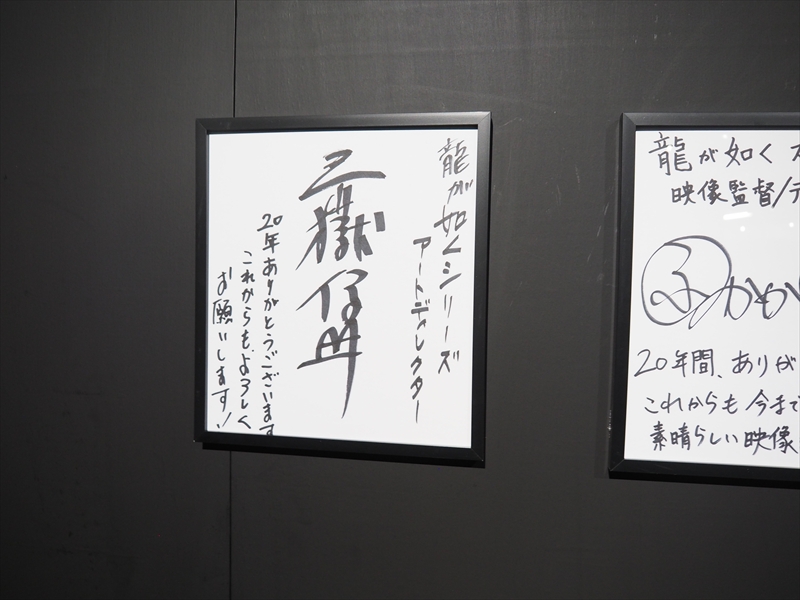 龍が如くシリーズ
アートディレクター
三嶽信明
20年ありがとうございます
これからもよろしく
お願いします!
龍が如く
映像監督/デ
20年間、ありが
これからも今まで
素晴らしい映像